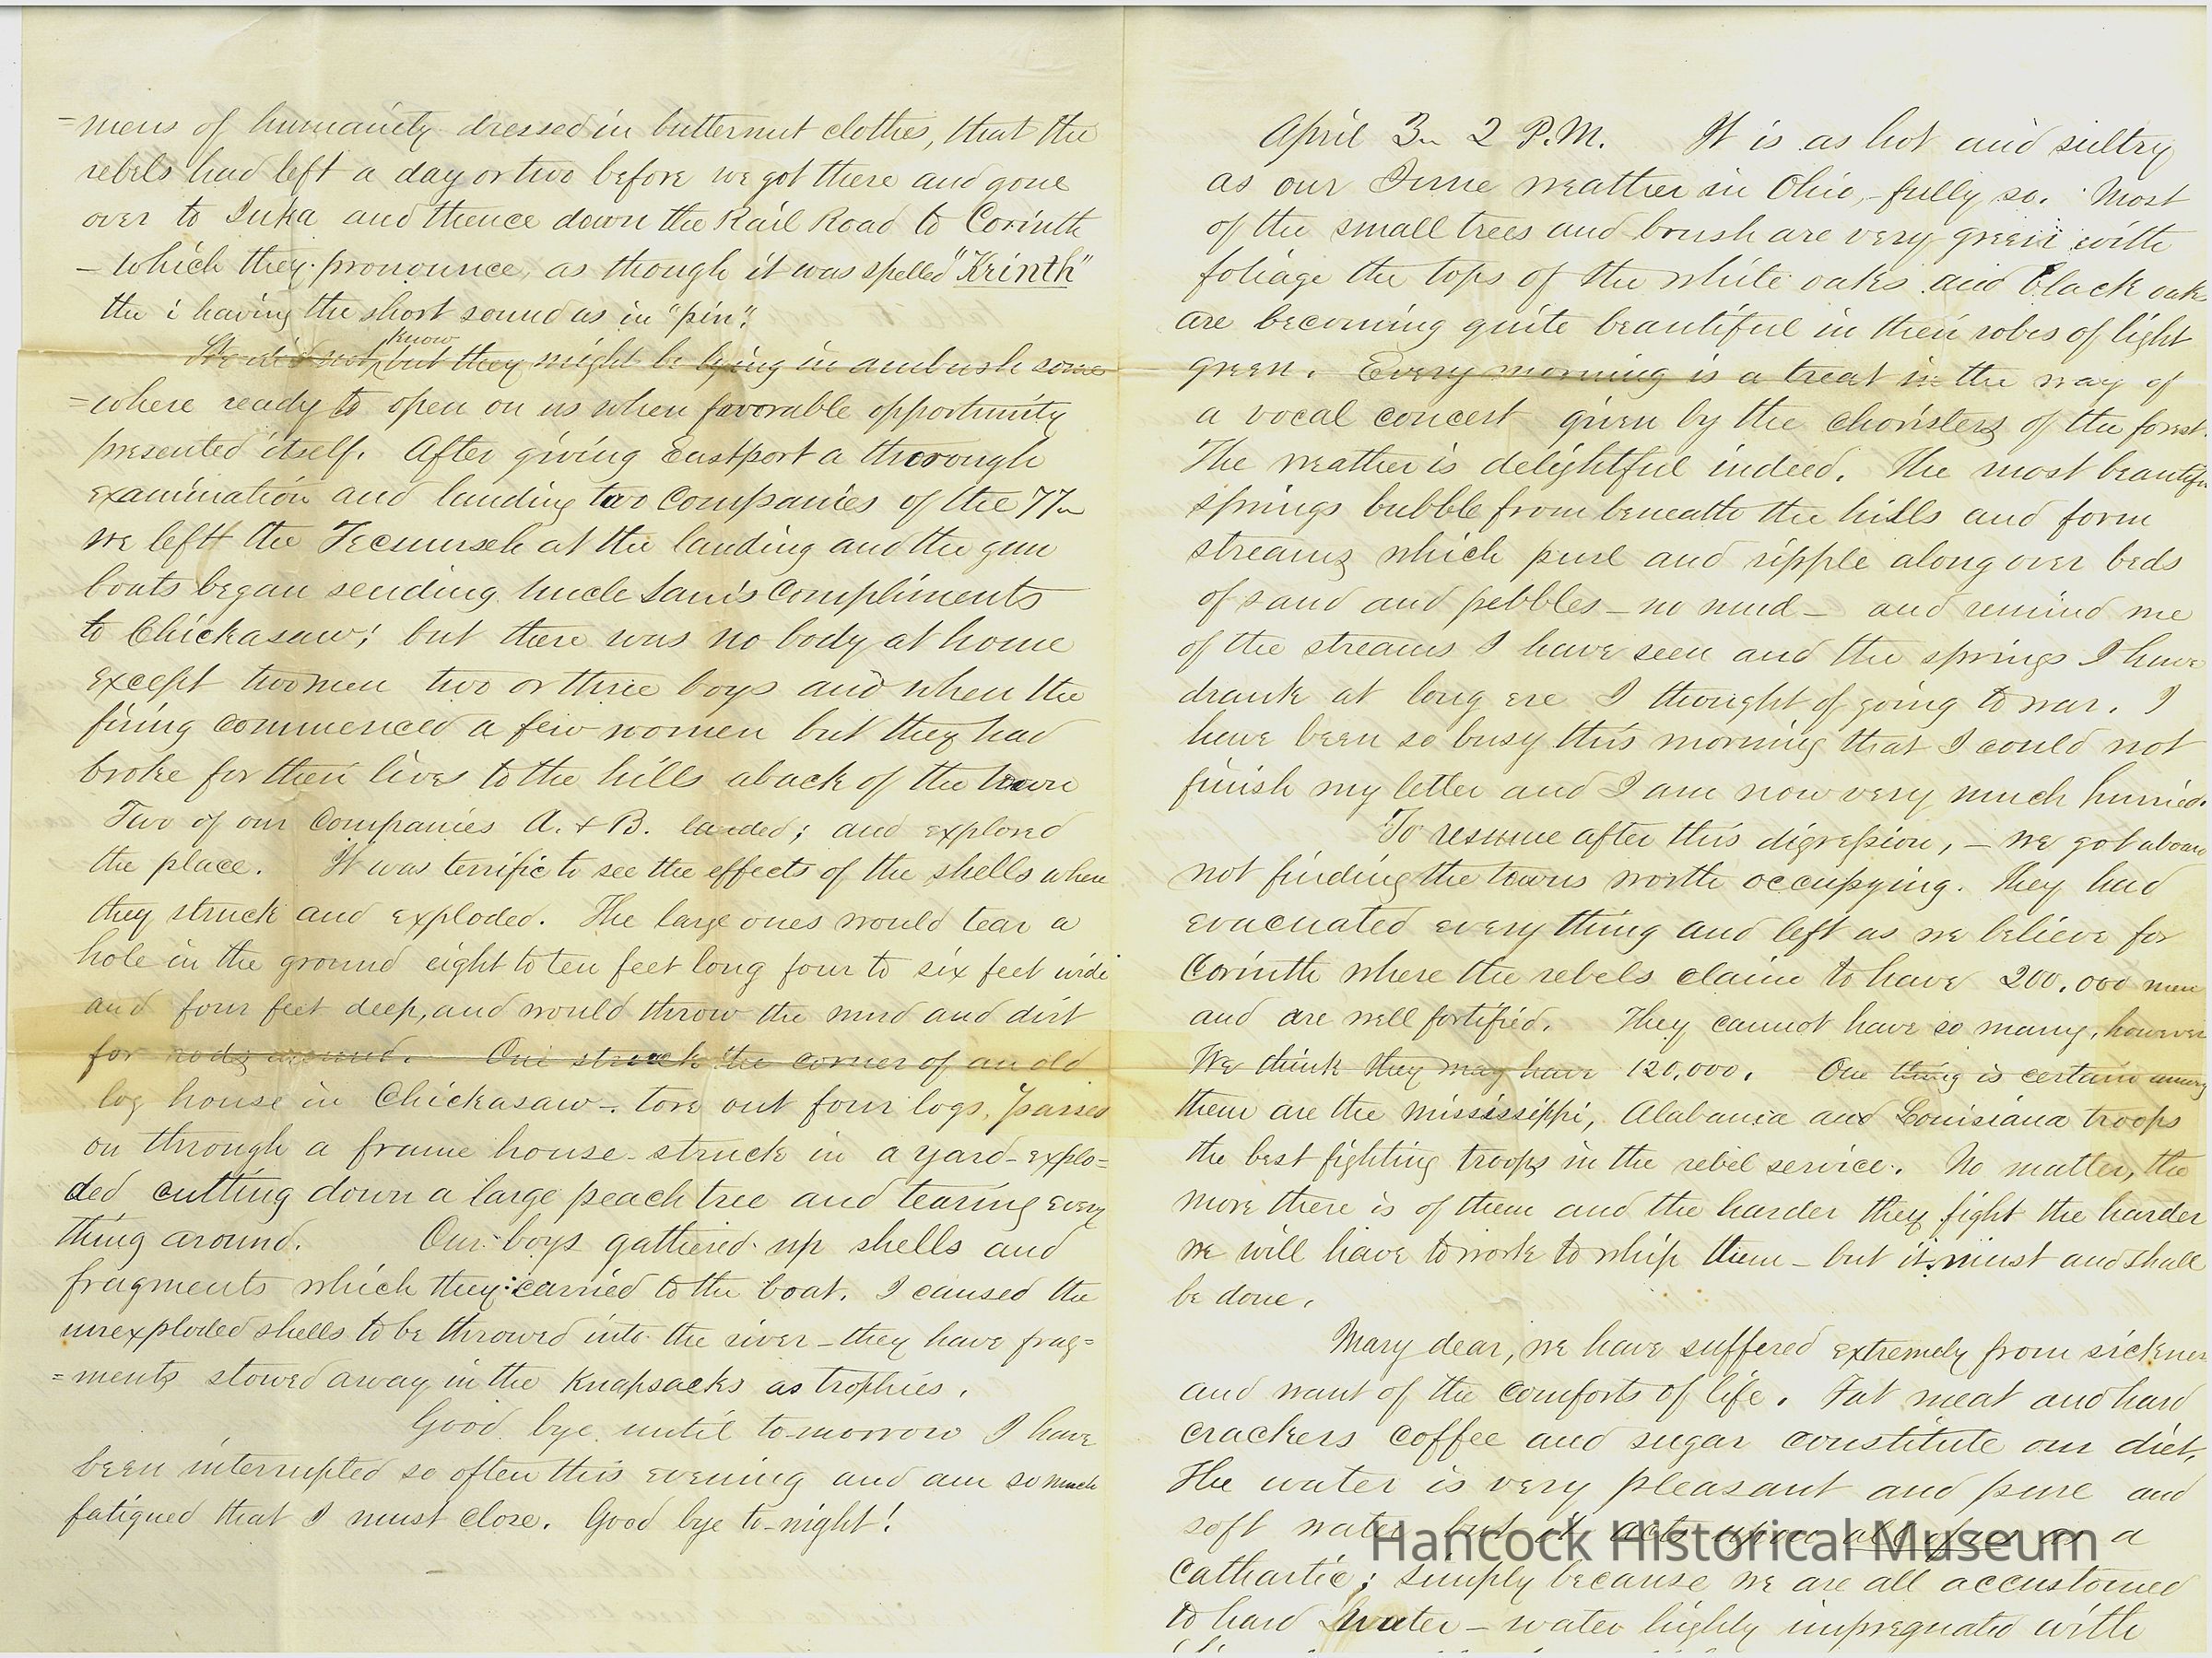 =mens of humanity dressed in butternut clothes, that the
rebels had left a day or two before we got there and gone
over to Iuka and thence down the Rail Road to Corinth
– which they pronounce, as though it was spelled "Krinth"
the i having the short sound as in "pin".
know
We did not but they might be lying in ambush some
=where ready to open on us when favorable opportunity
presented itself. After giving Eastport a thorough
examination and landing two Companies of the 77th
we left the Tecumseh at the landing and the gun
boats began sending Uncle Sam's Compliments
to Chickasaw; but there was no body at home
except two men two or three boys and when the
firing commenced a few women but they had
broke for their lives to the hills aback of the town
Two of our Companies A. & B. landed; and explored
the place. It was terrific to see the effects of the shells when
they struck and exploded. The large ones would tear a
hole in the ground eight to ten feet long four to six feet wide
and four feet deep, and would throw the mud and dirt
for rods around. One struck the corner of an old
log house in Chickasaw – tore out four logs, passed
on through a frame house – struck in a yard – explo=
ded cutting down a large peach tree and tearing every
thing around. Our boys gathered up shells and
fragments which they carried to the boat. I caused the
unexploded shells to be throwed into the river – they have frag=
=ments stowed away in the Knapsacks as trophies.
Good bye until to-morrow I have
been interrupted so often this evening and am so much
fatigued that I must close. Good bye to-night!
April 3rd 2 P.M. It is as hot and sultry
as our June weather in Ohio, – fully so. Most
of the small trees and brush are very green with
foliage the tops of the white oaks and black oaks
are becoming quite beautiful in their robes of light
green. Every morning is a treat in the way of
a vocal concert given by the choristers of the forest.
The weather is delightful indeed. The most beautiful
springs bubble from beneath the hills and form
streams which purl and ripple along over beds
of sand and pebbles – no mud – and remind me
of the streams I have seen and the springs I have
drank at long ere I thought of going to war. I
have been so busy this morning that I could not
finish my letter and I am now very much hurried.
To resume after this digression, – we got aboard
not finding the towns worth occupying. They had
evacuated every thing and left as we believe for
Corinth where the rebels claim to have 200,000 men
and are well fortified. They cannot have so many, however
We think they may have 120,000. One thing is certain among
them are the Mississippi, Alabama and Louisiana troops
the best fighting troops in the rebel service. No matter, the
more there is of them and the harder they fight the harder
we will have to work to whip them – but it must and shall
be done.
Mary dear, we have suffered extremely from sickness
and want of the comforts of life. Fat meat and hard
crackers coffee and sugar constitute our diet,
The water is very pleasant and pure and
soft water but it acts upon all of us as a
Cathartic; simply because we are all accustomed
to hard water – water highly impregnated with
Hancock Historical Museum